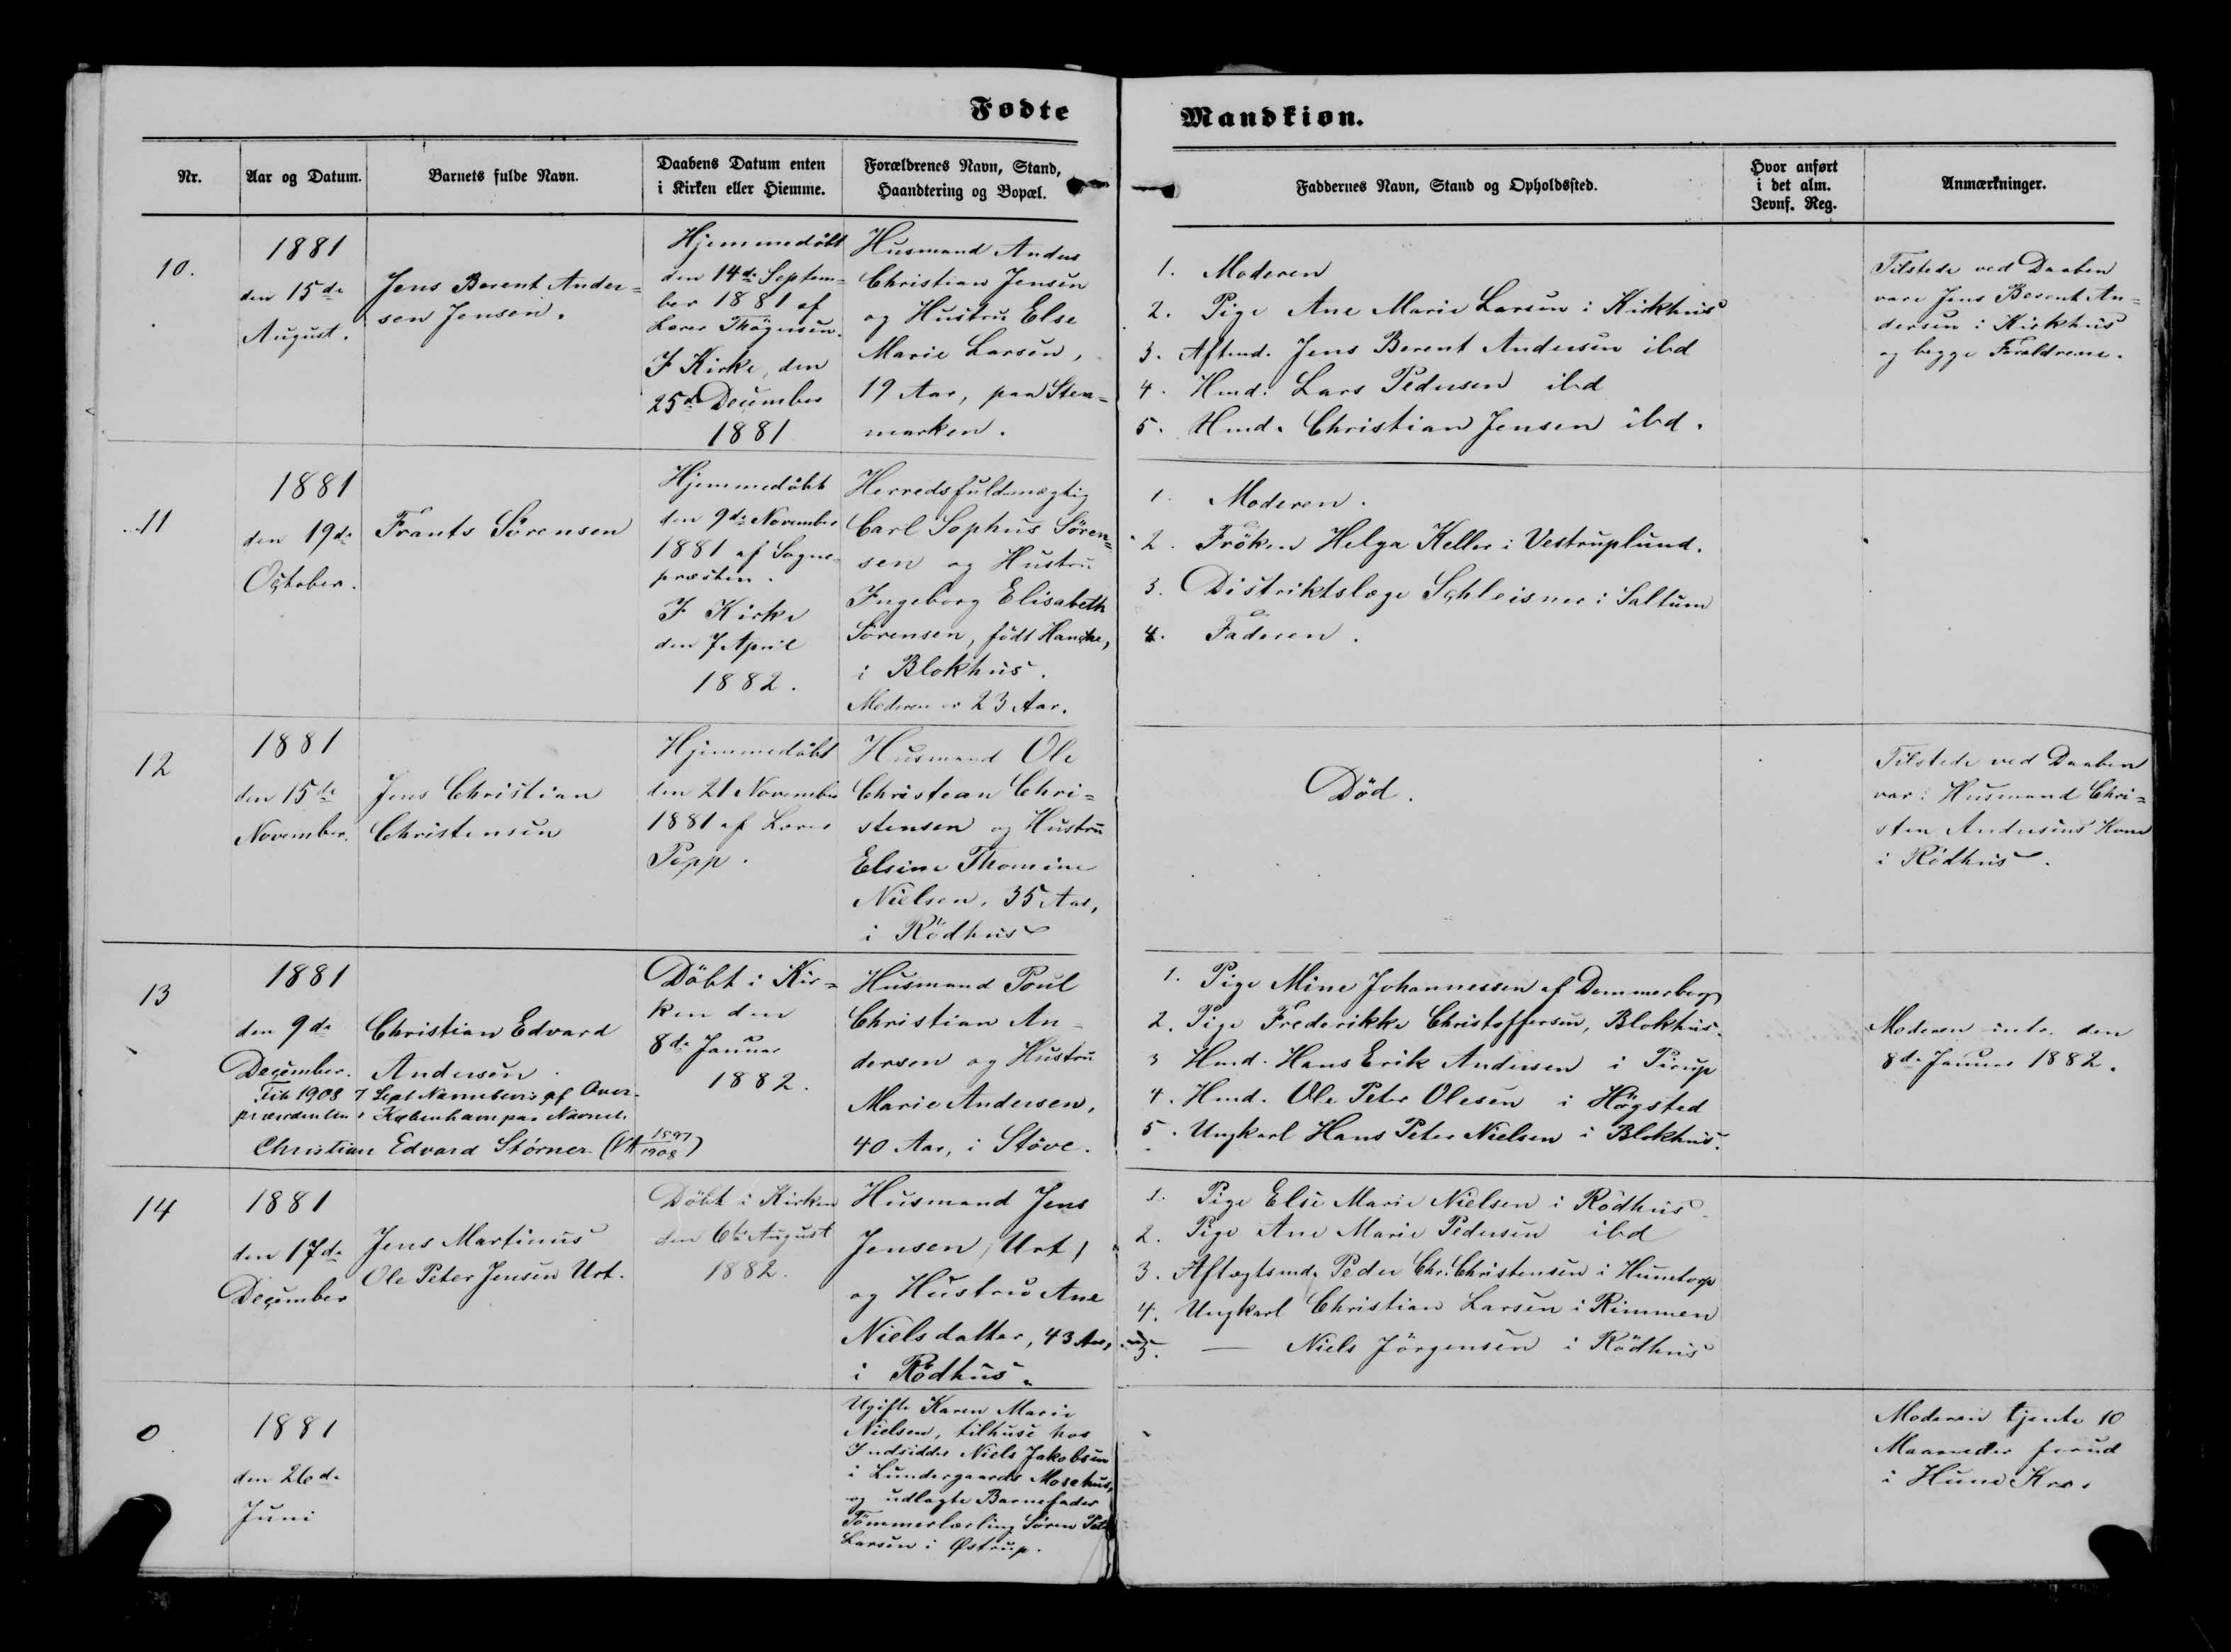 Fødte
Mandkiøn.
Nr.
Aar og Datum.
Barnets fulde Navn.
Daabens Datum enten
i Kirken eller Hiemme.
Forældrenes Navn, Stand,
Haandtering og Bopæl.
Faddernes Navn, Stand og Opholdssted.
Hvor anført
i det alm.
Jevnf. Reg.
Anmærkninger.
10.
1881
den 15de
August.
Jens Berent Ander-
sen Jensen.
Hjemmedöbt
den 14de Septem-
ber 1881 af
Lærer Thögersen.
I Kirke, den
25de December
1881
Husmand Anders
Christian Jensen
og Hustru Else
Marie Larsen,
19 Aar, paa Sten-
marken.
1. Moderen
2. Pige Ane Marie Larsen i Kirkhus
3. Aftmd. Jens Berent Andersen ibd
4. Hmd. Lars Pedersen ibd
5. Hmd. Christian Jensen ibd.
Tilstede ved Daaben
vare Jens Berent An-
dersen i Kirkhus
og begge Forældrene.
11
1881
den 19de
October.
Frants Sörensen
Hjemmedöbt
den 9de November
1881 af Sogne-
præsten.
I Kirke
den 7 April
1882.
Herredsfuldmægtig
Carl Sophus Sören-
sen og Hustru
Ingeborg Elisabeth
Sörensen, födt
i Blokhus.
Moderen er 23 Aar.
1. Moderen.
2. Fröken Helga Keller i Vestruplund.
3. Distriktslæge Schleisner i Saltum
4. Faderen.
12
1881
den 15de
November.
Jens Christian
Christensen
Hjemmedöbt
den 21 November
1881 af Lærer
Popp.
Husmand Ole
Christean Chri-
stensen og Hustru
Elsine Thomine
Nielsen, 35 Aar,
i Rödhus
Död.
Tilstede ved Daaben
var: Husmand Chri-
sten Andersens Kone
i Rödhus.
13
1881
den 9de
December.
Christian Edvard
Andersen.
Fik 1908 7 Sept Navnebevis af Over-
præsidenten i København paa Navnet:
Christian Edvard Störner. (VA 1597/1908)
Döbt i Kir-
ken den
8de Januar
1882.
Husmand Poul
Christian An-
dersen og Hustru
Marie Andersen,
40 Aar, i Stöve.
1. Pige Mine Johannessen af Dommerberg
2. Pige Frederikke Christoffersen, Blokhus.
3 Hmd. Hans Erik Andersen i Pirup
4. Hmd. Ole Peter Olesen i Högsted
5. Ungkarl Hans Peter Nielsen i Blokhus.
Moderen intr. den
8de Januar 1882.
14
1881
den 17de
December
Jens Martinus
Ole Peter Jensen Urt.
Döbt i Kirken
den 6te August
1882.
Husmand Jens
Jensen (Urt)
og Hustru Ane
Nielsdatter, 43 Aar,
i Rödhus.
1. Pige Else Marie Nielsen i Rödhus
2. Pige Ane Marie Pedersen ibd
3. Aftægtsmd. Peder Chr. Christensen i Hunetorp
4. Ungkarl Christian Larsen i Rimmen
5. — Niels Jörgensen i Rödhus
0
1881
den 26de
Juni
Ugifte Karen Marie
Nielsen, tilhuse hos
Indsidder Niels Jakobsen
i Lundergaards Mosehus,
og udlagte Barnefader
Tömmerlærling Sören Peter
Larsen i Østrup.
Moderen tjente 10
Maaneder forud
i Hune Kro.